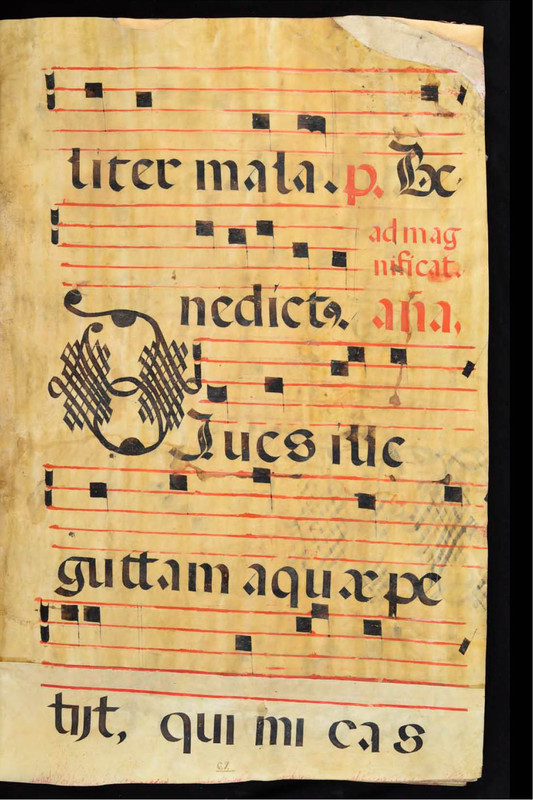 liter mala. p. Be
ad mag
nificat.
nedictꝯ. aña.
Diues ille
guttam aquæ pe
tijt, qui mi cas